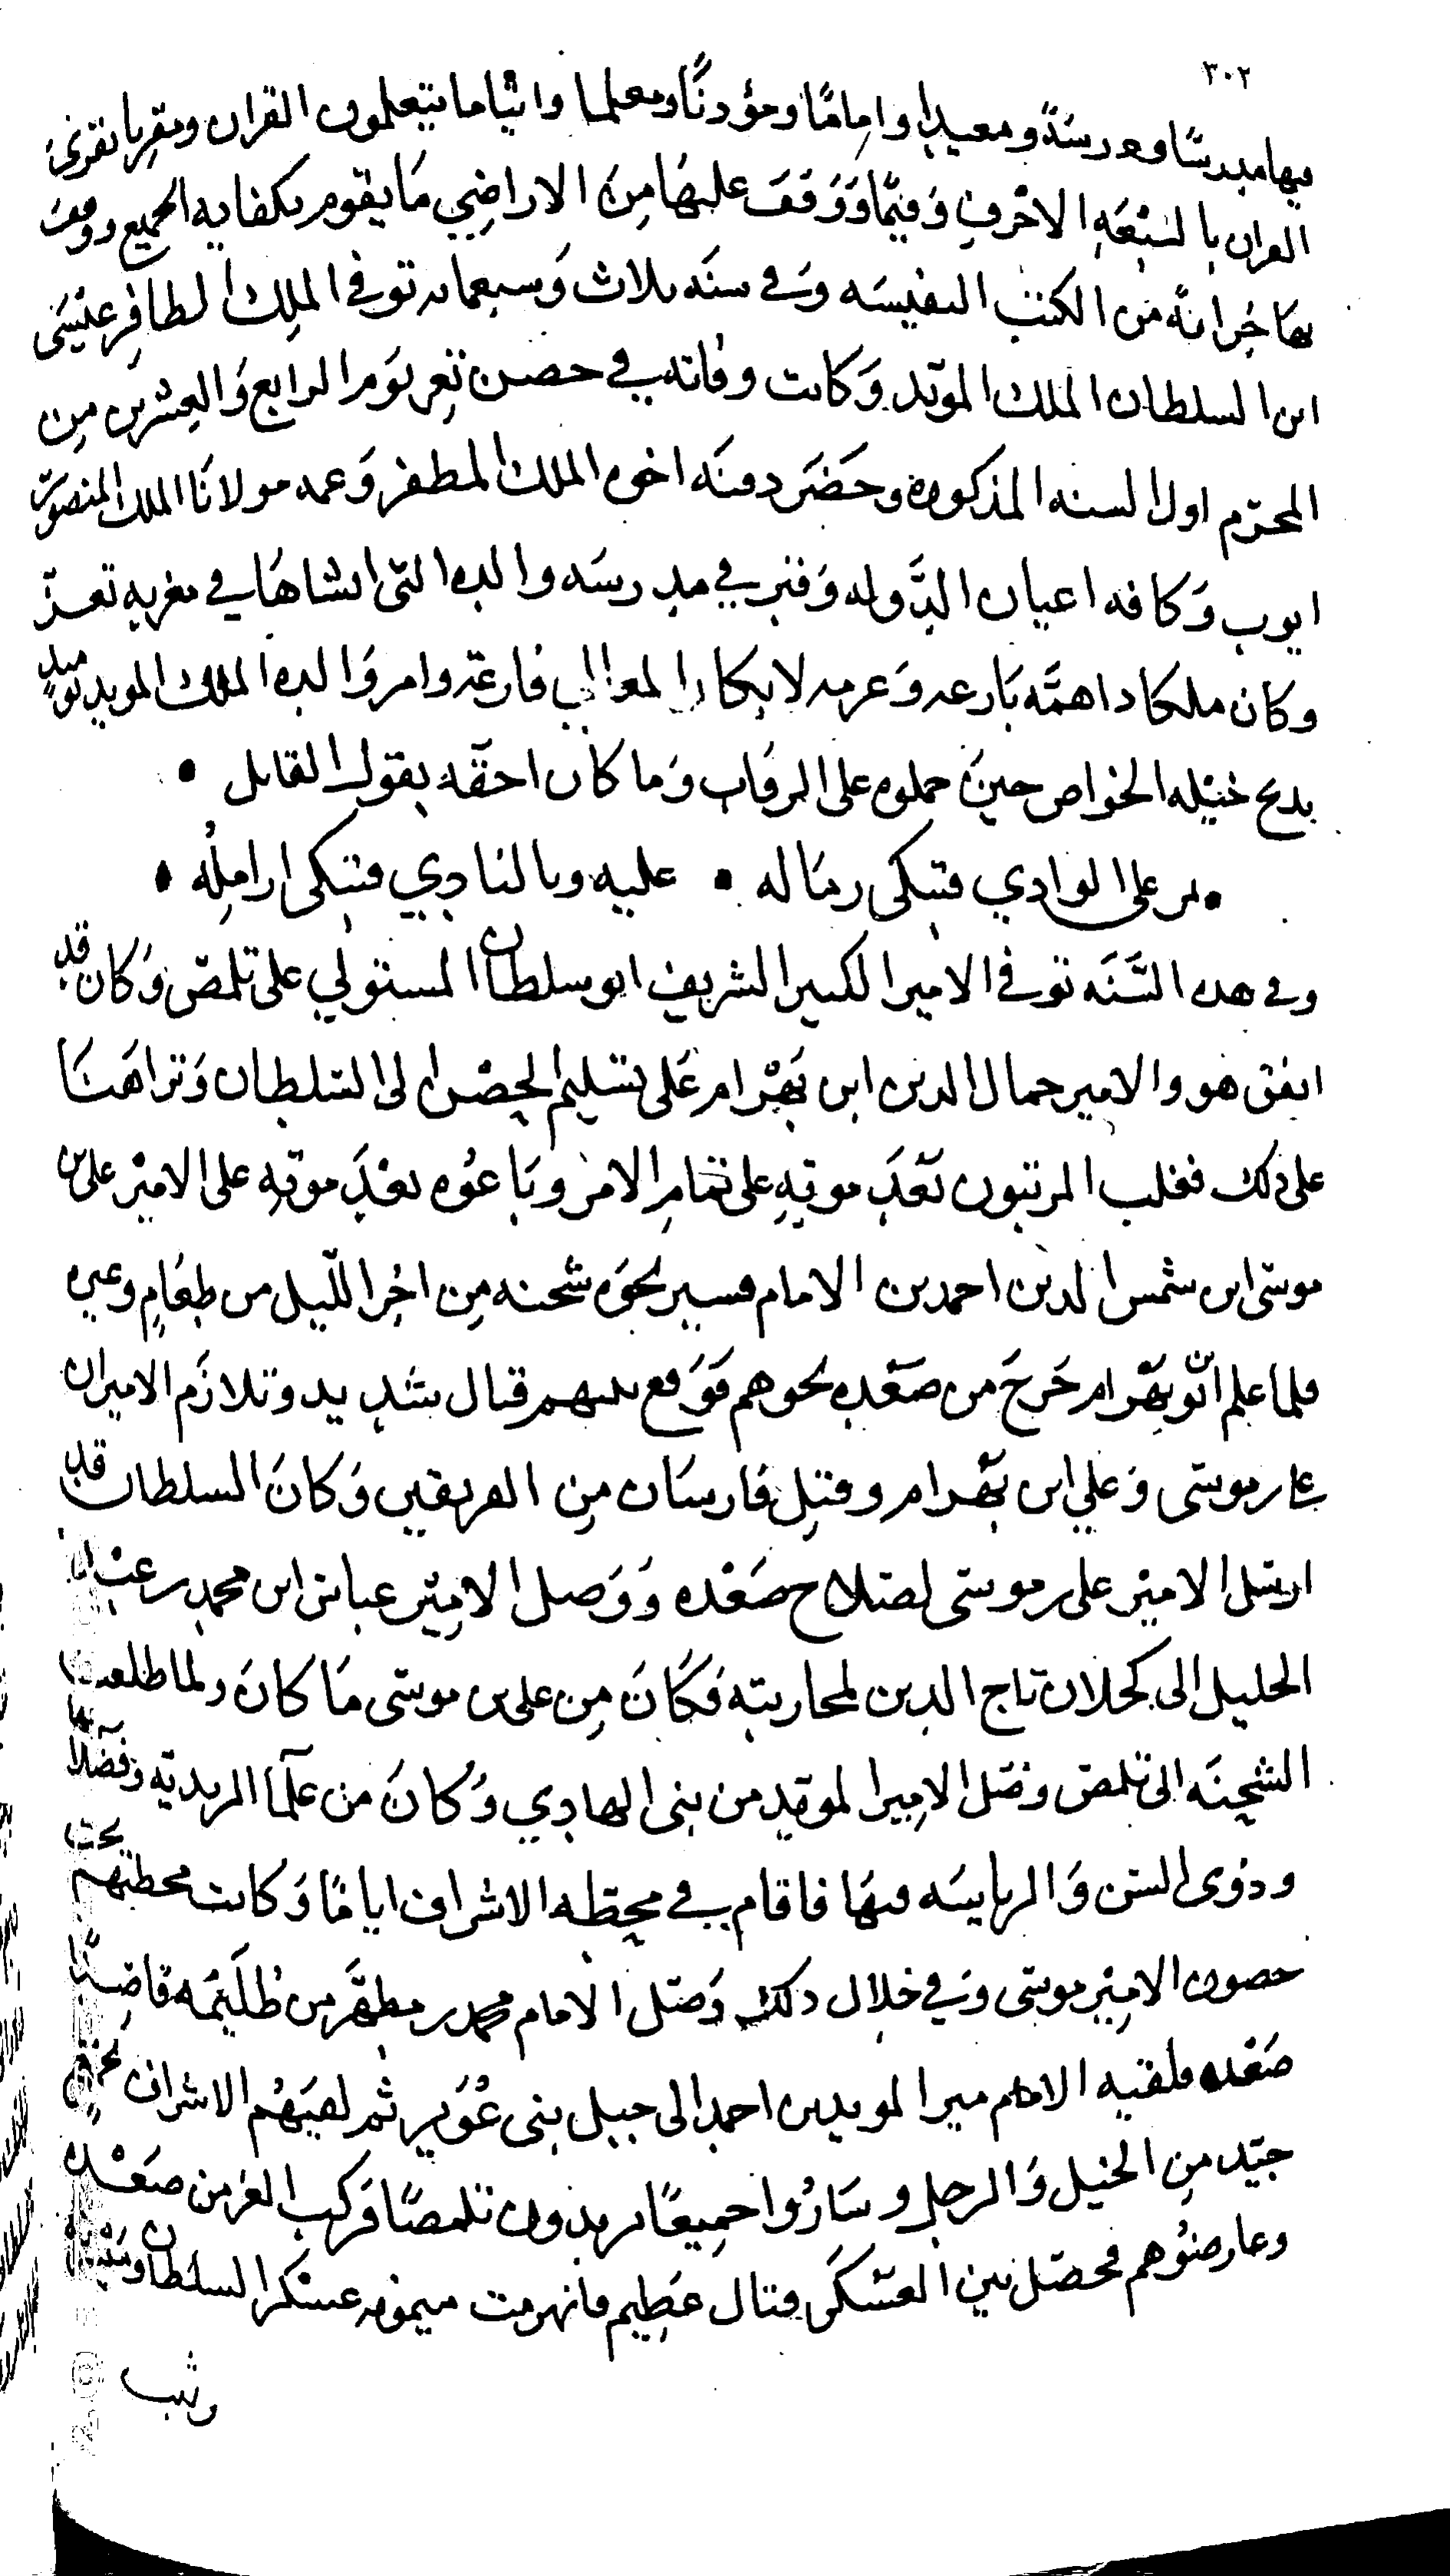 ٣٠٢
فيها مدرسًا ومدرسَةً ومعيدا وامامًا ومؤذنًا ومعلما وايتاما يتعلمون القران ومقريا يقرئ
القران بالسَبْعَهِ الاحْرفِ وَقيمًا وَوَقفَ عليهَا مِنَ الاراضِي مَا يقوم بكفايه الجميع ووقف
بها خزانه من الكتب النفيسَه وَفي سنَه ثلاث وَسبعمايه توفي الملِك الظافِر عيْسَى
ابن السلطان الملك المويد وَكانت وفاته في حصن تعز يوم الرابع وَالعِشرين مِن
المحرّم اول السنه المذكوره وحَضَر دفنَه اخوه الملك المظفر وَعمه مولانَا الملك المنصور
ايوب وَكافه اعيان الدَّوله وَقبر في مدرسَه والده التي انشاهَا في مغربه تعزّ
وكان ملكا ذا همَّه بَارعه وَعزمه لابكار المعالي فارعة وامر وَالده الملك المويد يوميذ
بذبح خيْله الخواص حينَ حملوه على الرقاب وَما كان احقّه بقول القايل
يمر على الوادي فتبكى رمَاله عليه وبالنادِي فتبكى ارامِلُه
وفي هذه السَّنَه توفي الامير الكبير الشريف ابو سلطان المستولي على تلمصّ وَكان قد
اتفق هو والامير جمال الدين ابن بَهْرام عَلى تسْليم الحِصْن الى السلطان وَتراهَنَا
على ذلك فغلب المرتبون بَعْدَ موتِهِ على تمامِ الامْر وبَاعُوه بعْدَ موتِهِ على الامير على بن
موسى ابن شمس الدين احمد بن الامام فسير نحوَه شحنه مِن اخر اللّيل من طعَامٍ وغيره
فلما علم ابن بهْرام خَرجَ من صعْده نحوهم فوَقع بينهم قتال شديد وتلازَم الاميران
على بن موسى وَعلي ابن بهْرام وقتِل فارسَان مِن الفريقين وَكانَ السلطان قد
ارسَل الامير على بن موسى لصلاح صَعْده وَوَصل الامِيْر عباس ابن محمد بن
الى كحلان تاج الدين لمحاربته فكانَ مِن على بن موسى مَا كانَ ولما طلعت
الشحنَه الى تلمصّ وصَل الامِير المويد من بنى الهادِي وَكانَ من علمَا الزيديّه وفضلايها
وذوى السن وَالرياسَه فيهَا فاقام في محطه الاشراف ايامًا وَكانت محطتهم تحت
حصون الامِيْر موسَى وَفي خلال ذلك وَصَل الامام محمد بن مطهَّر من ظُلَيْمَه قاصِدًا
صَعْده فلقيه الامير المويد بن احمد الى جبل بنى عُوَير ثم لقيَهُم الاشراف
جيّد مِن الخيل وَالرجل وسَارُوا جميعًا يريدون تلمصًا فركب الغز من صَعْده
وعارضوُهم فحصَل بين العسْكرين قتال عَظيم فانهزمت ميمنه عسْكر السلطان
وثبت